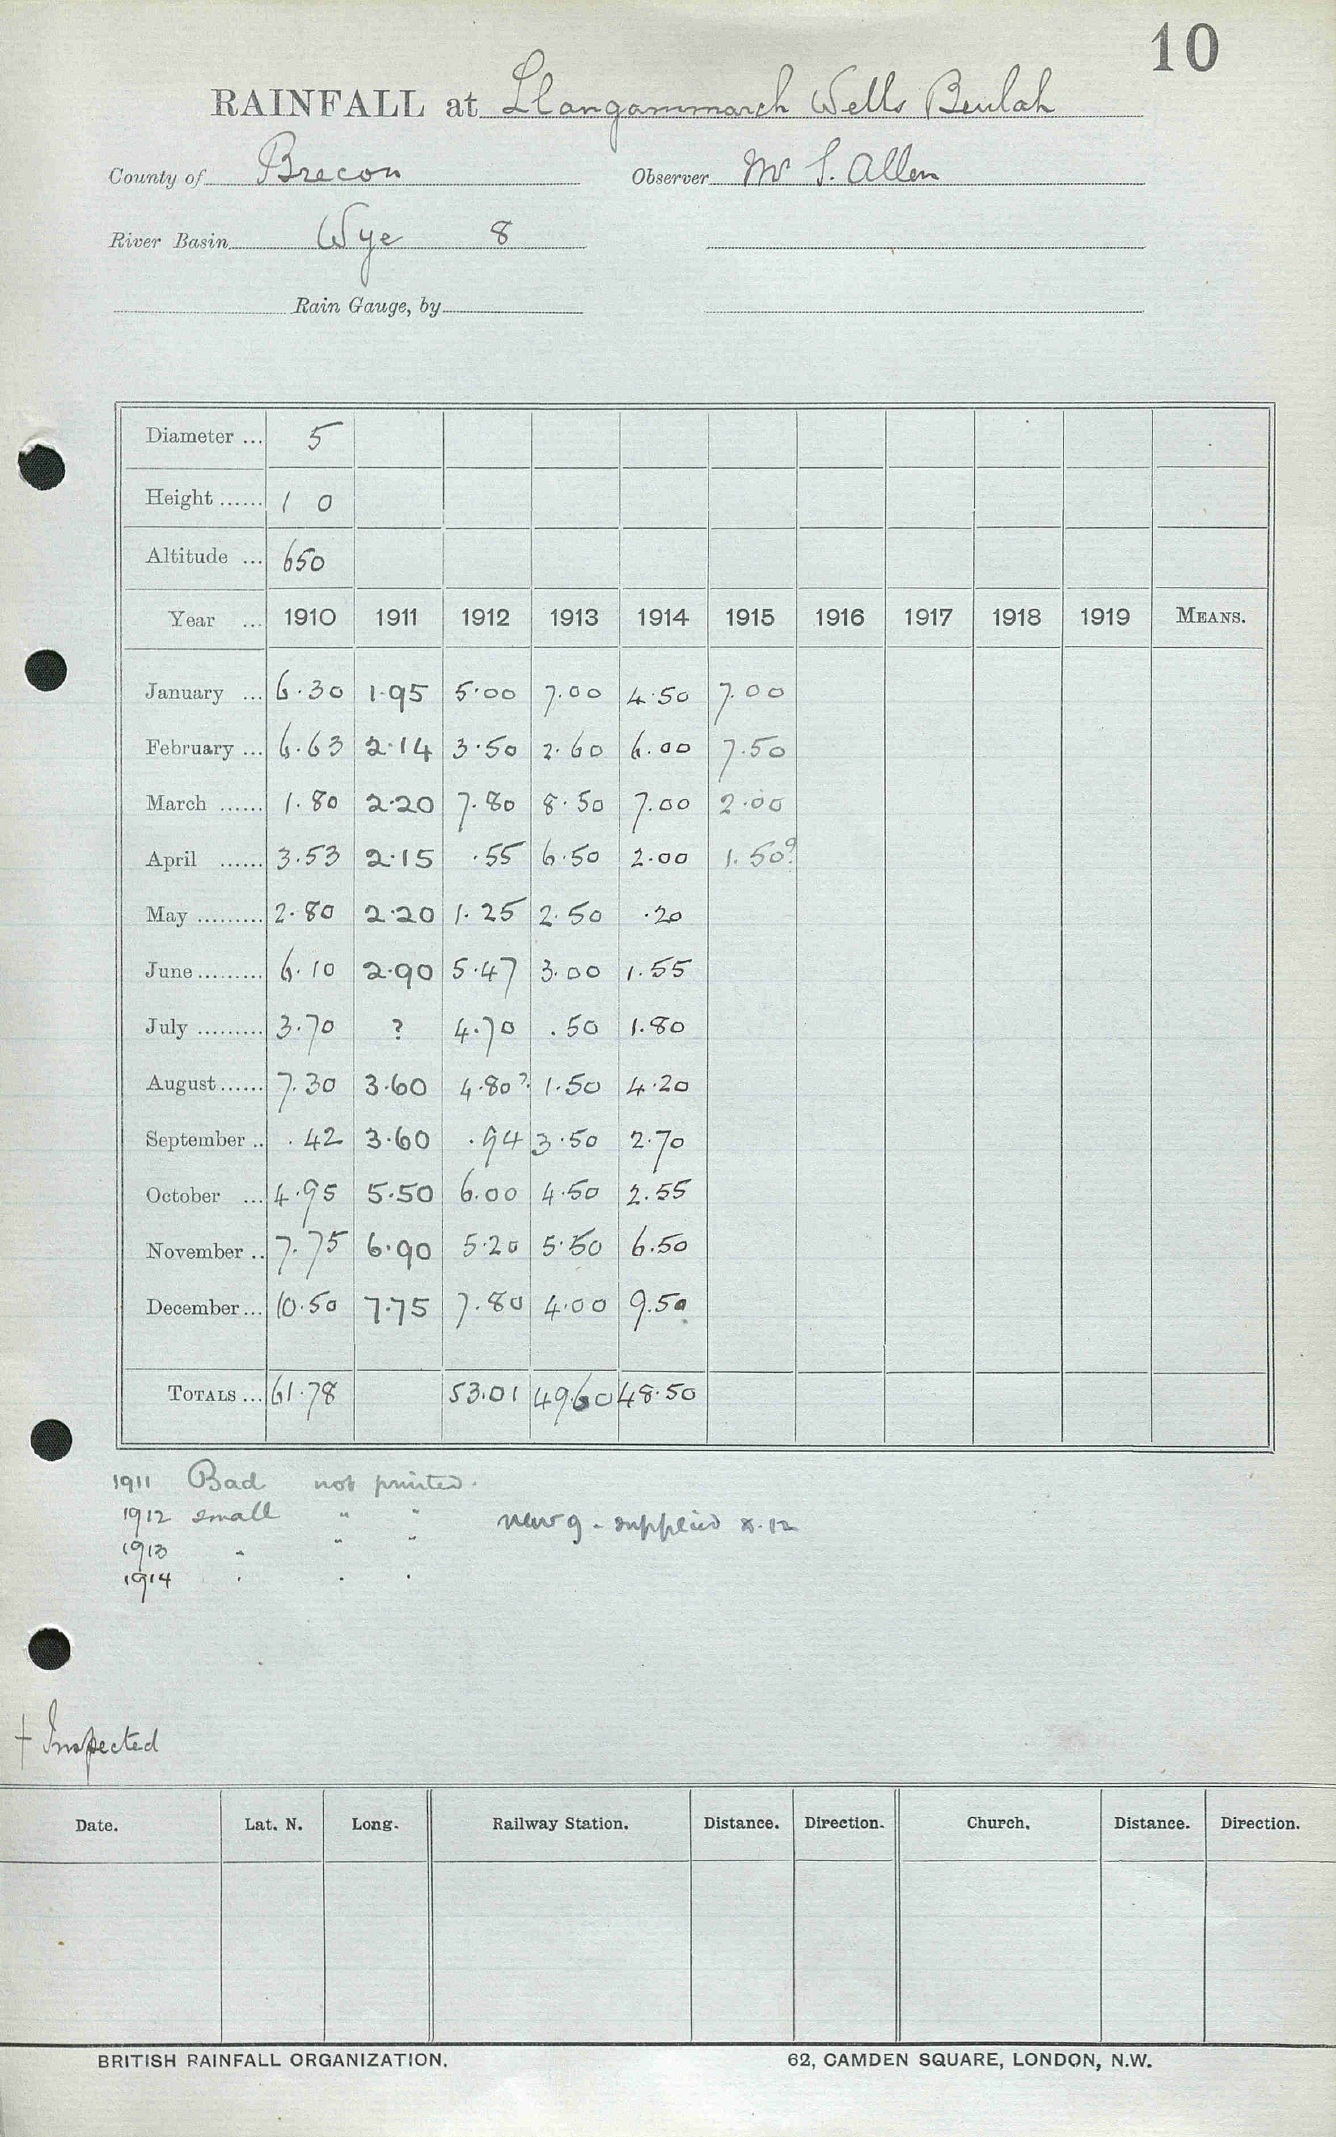 10
RAINFALL at Llangammarch Wells Beulah
County of Brecon Observer Mr S. Allen
River Basin Wye 8
Rain Gauge, by
Diameter ... 5
Height ...... 1 0
Altitude ... 650
Year ... 1910 1911 1912 1913 1914 1915 1916 1917 1918 1919 MEANS.
January ... 6.30 1.95 5.00 7.00 4.50 7.00
February ... 6.63 2.14 3.50 2.60 6.00 7.50
March ...... 1.80 2.20 7.80 8.50 7.00 2.00
April ...... 3.53 2.15 .55 6.50 2.00 1.50?
May ......... 2.80 2.20 1.25 2.50 .20
June ......... 6.10 2.90 5.47 3.00 1.55
July ......... 3.70 ? 4.70 .50 1.80
August ...... 7.30 3.60 4.80? 1.50 4.20
September .. .42 3.60 .94 3.50 2.70
October ... 4.95 5.50 6.00 4.50 2.55
November .. 7.75 6.90 5.20 5.50 6.50
December ... 10.50 7.75 7.80 4.00 9.50
TOTALS ... 61.78 53.01 49.60 48.50
1911 Bad not printed.
1912 small " " new g. supplied X.12
1913 " " "
1914 " " "
+ Inspected
Date. Lat. N. Long. Railway Station. Distance. Direction. Church. Distance. Direction.
BRITISH RAINFALL ORGANIZATION. 62, CAMDEN SQUARE, LONDON, N.W.